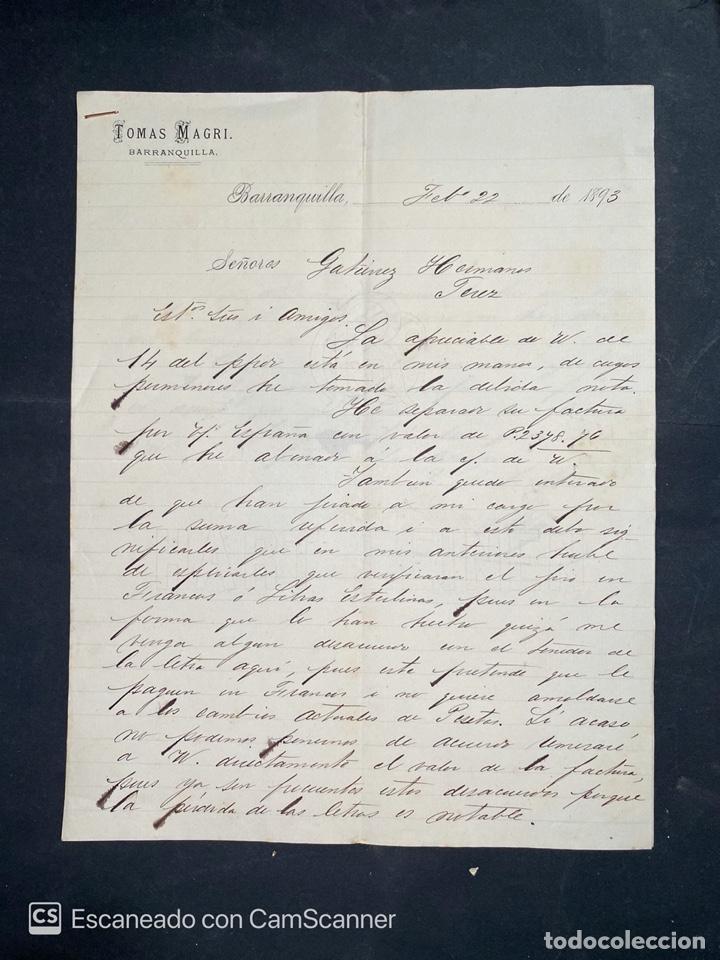 TOMAS MAGRI.
BARRANQUILLA.
Barranquilla, Feb° 22 de 1893
Señores Gutierrez Hermanos
Jerez
Est.os Sres i Amigos.
La apreciable de W. de
14 del ppor está en mis manos, de cuyos
permenores he tomado la debida nota.
He separado su factura
por Vr. España con valor de P.2378.76
que he abonado á la c/. de W.
Tambien quedo enterado
de que han jirado a mi cargo por
la suma referida i a esto debo sig
nificarles que en mis anteriores hube
de esplicarles que verificaran el jiro en
Francos ó Libras Esterlinas, pues en la
forma que lo han hecho quizá me
venga algun desacuerdo con el tenedor de
la letra aquí pues este pretende que le
paguen in Francos i no quiere amoldarse
a los cambios actuales de Pesetas. Si acaso
no podemos ponernos de acuerdo remesaré
a W. directamente el valor de la factura,
pues ya son frecuentes estos desacuerdos porque
la pérdida de las letras es notable.
CS Escaneado con CamScanner
todocoleccion